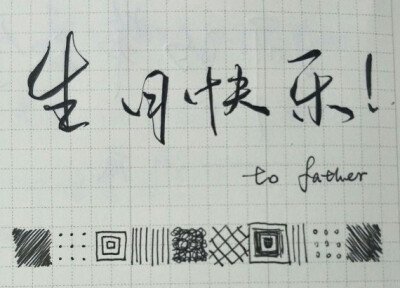 生日快乐!
to father